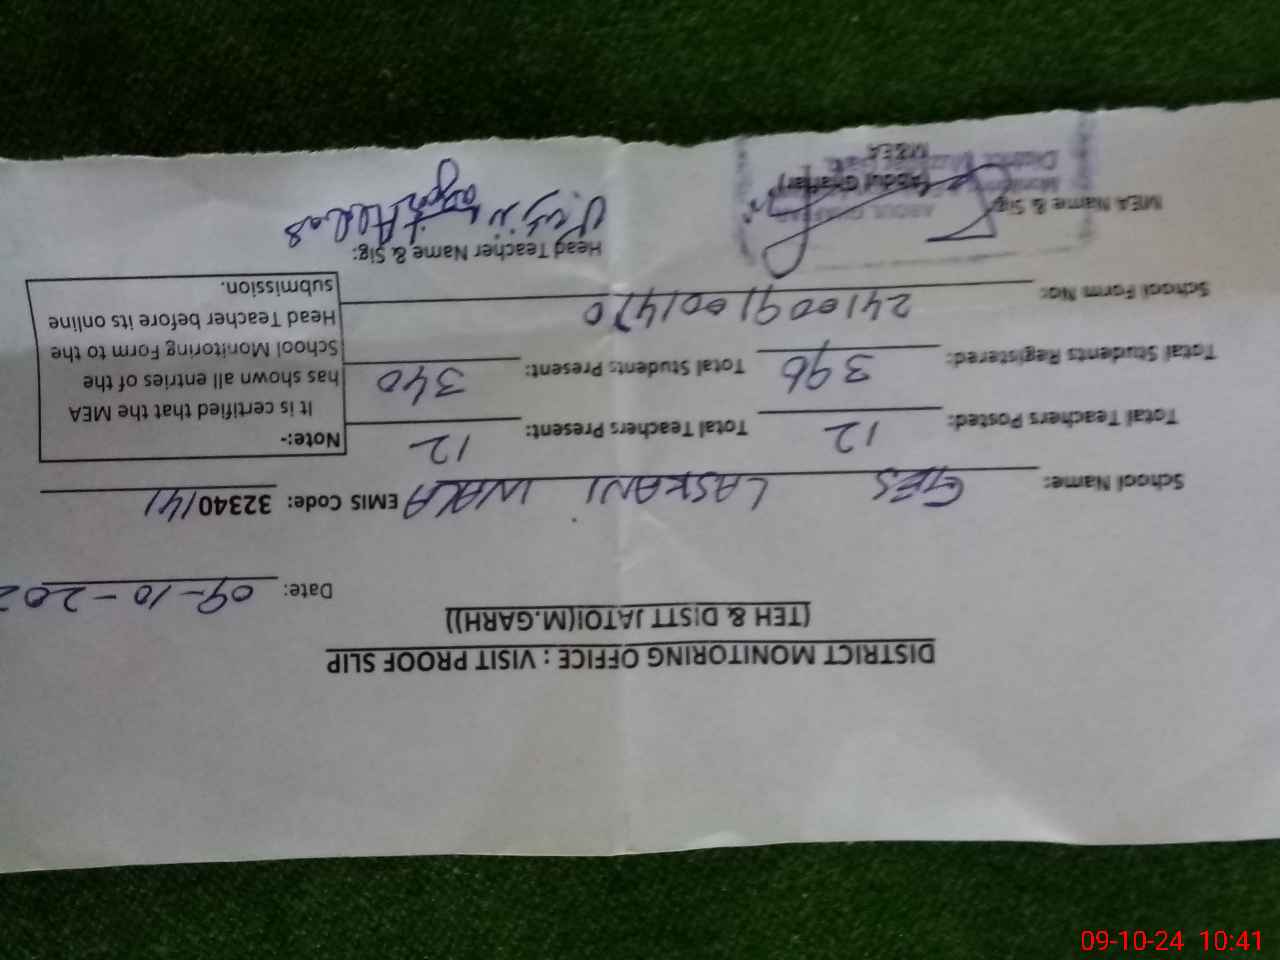 DISTRICT MONITORING OFFICE : VISIT PROOF SLIP
(TEH & DISTT JATOI(M.GARH))
Date: 09-10-202
School Name: GES LASKANI WALA EMIS Code: 32340141
Total Teachers Posted: 12 Total Teachers Present: 12
Total Students Registered: 396 Total Students Present: 340
School Form No: 2410091001470
Note:-
It is certified that the MEA
has shown all entries of the
School Monitoring Form to the
Head Teacher before its online
submission.
MEA Name & Sig: Head Teacher Name & Sig:
ABDUL GHAFFAR
(Abdul Ghaffar)
MEA
09-10-24 10:41